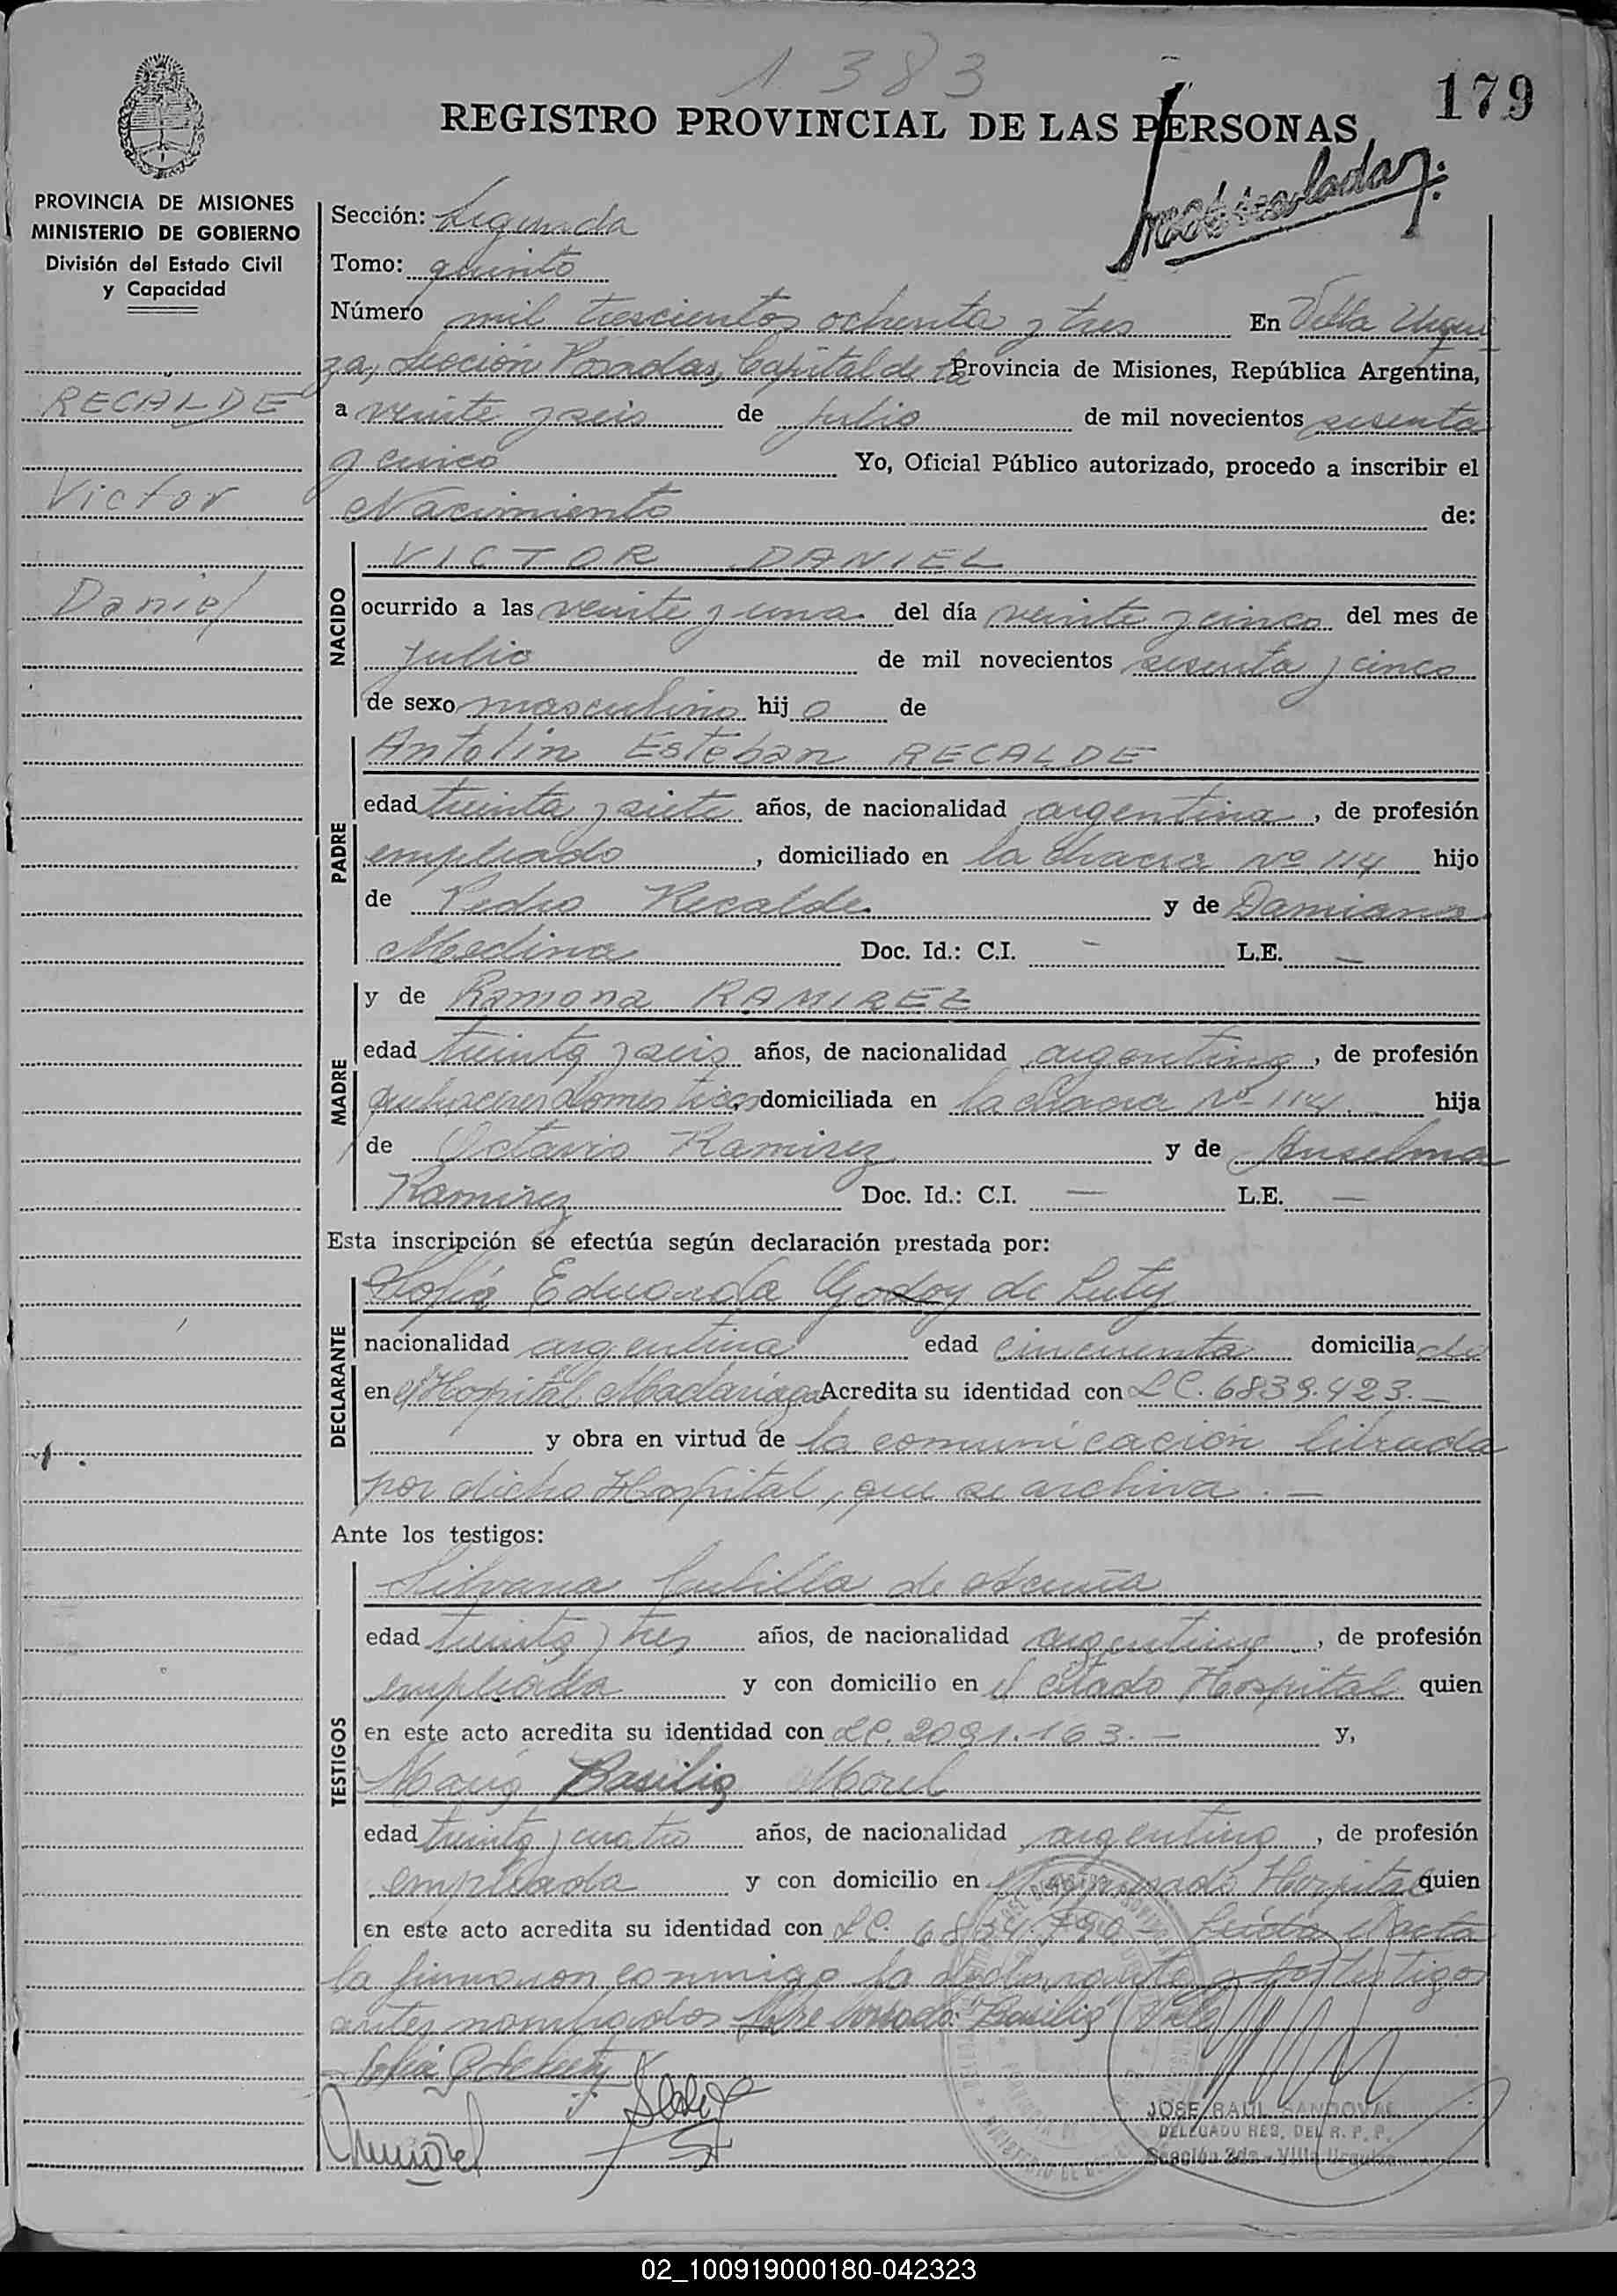 1383
179
REGISTRO PROVINCIAL DE LAS PERSONAS
Matriculado
PROVINCIA DE MISIONES
MINISTERIO DE GOBIERNO
División del Estado Civil
y Capacidad
RECALDE
Victor
Daniel
Sección: Segunda
Tomo: quinto
Número mil trescientos ochenta y tres En Villa Urqui
za, Sección Posadas, Capital de la Provincia de Misiones, República Argentina,
a veinte y seis de julio de mil novecientos sesenta
y cinco Yo, Oficial Público autorizado, procedo a inscribir el
Nacimiento de:
NACIDO
VICTOR DANIEL
ocurrido a las veinte y una del día veinte y cinco del mes de
julio de mil novecientos sesenta y cinco
de sexo masculino hijo de
PADRE
Antolin Esteban RECALDE
edad treinta y siete años, de nacionalidad argentina, de profesión
empleado, domiciliado en la chacra Nº 114 hijo
de Pedro Recalde y de Damiana
Medina Doc. Id.: C.I. — L.E. —
MADRE
y de Ramona RAMIREZ
edad treinta y seis años, de nacionalidad argentina, de profesión
quehaceres domesticos domiciliada en la chacra Nº 114. hija
de Octavio Ramirez y de Anselma
Ramirez Doc. Id.: C.I. — L.E. —
Esta inscripción se efectúa según declaración prestada por:
DECLARANTE
Sofía Eduarda Godoy de Luty
nacionalidad argentina edad cincuenta domiciliada
en el Hospital Madariaga Acredita su identidad con L.C. 6839.423.—
y obra en virtud de la comunicación librada
por dicho Hospital, que se archiva.—
Ante los testigos:
TESTIGOS
Silvana Cubilla de Acuña
edad treinta y tres años, de nacionalidad argentina, de profesión
empleada y con domicilio en el citado Hospital quien
en este acto acredita su identidad con L.C. 2091.163.— y,
María Basilia Morel
edad treinta y cuatro años, de nacionalidad argentina, de profesión
empleada y con domicilio en el Hospital quien
en este acto acredita su identidad con L.C. 6834.790— Leída el acta
la firmaron conmigo la declarante y los testigos
antes nombrados. Sobre borrado: "Basilia" Vale
JOSE RAUL SANDOVAL
DELEGADO REG. DEL R. P. P.
Sección 2da - Villa Urquiza
02_100919000180-042323